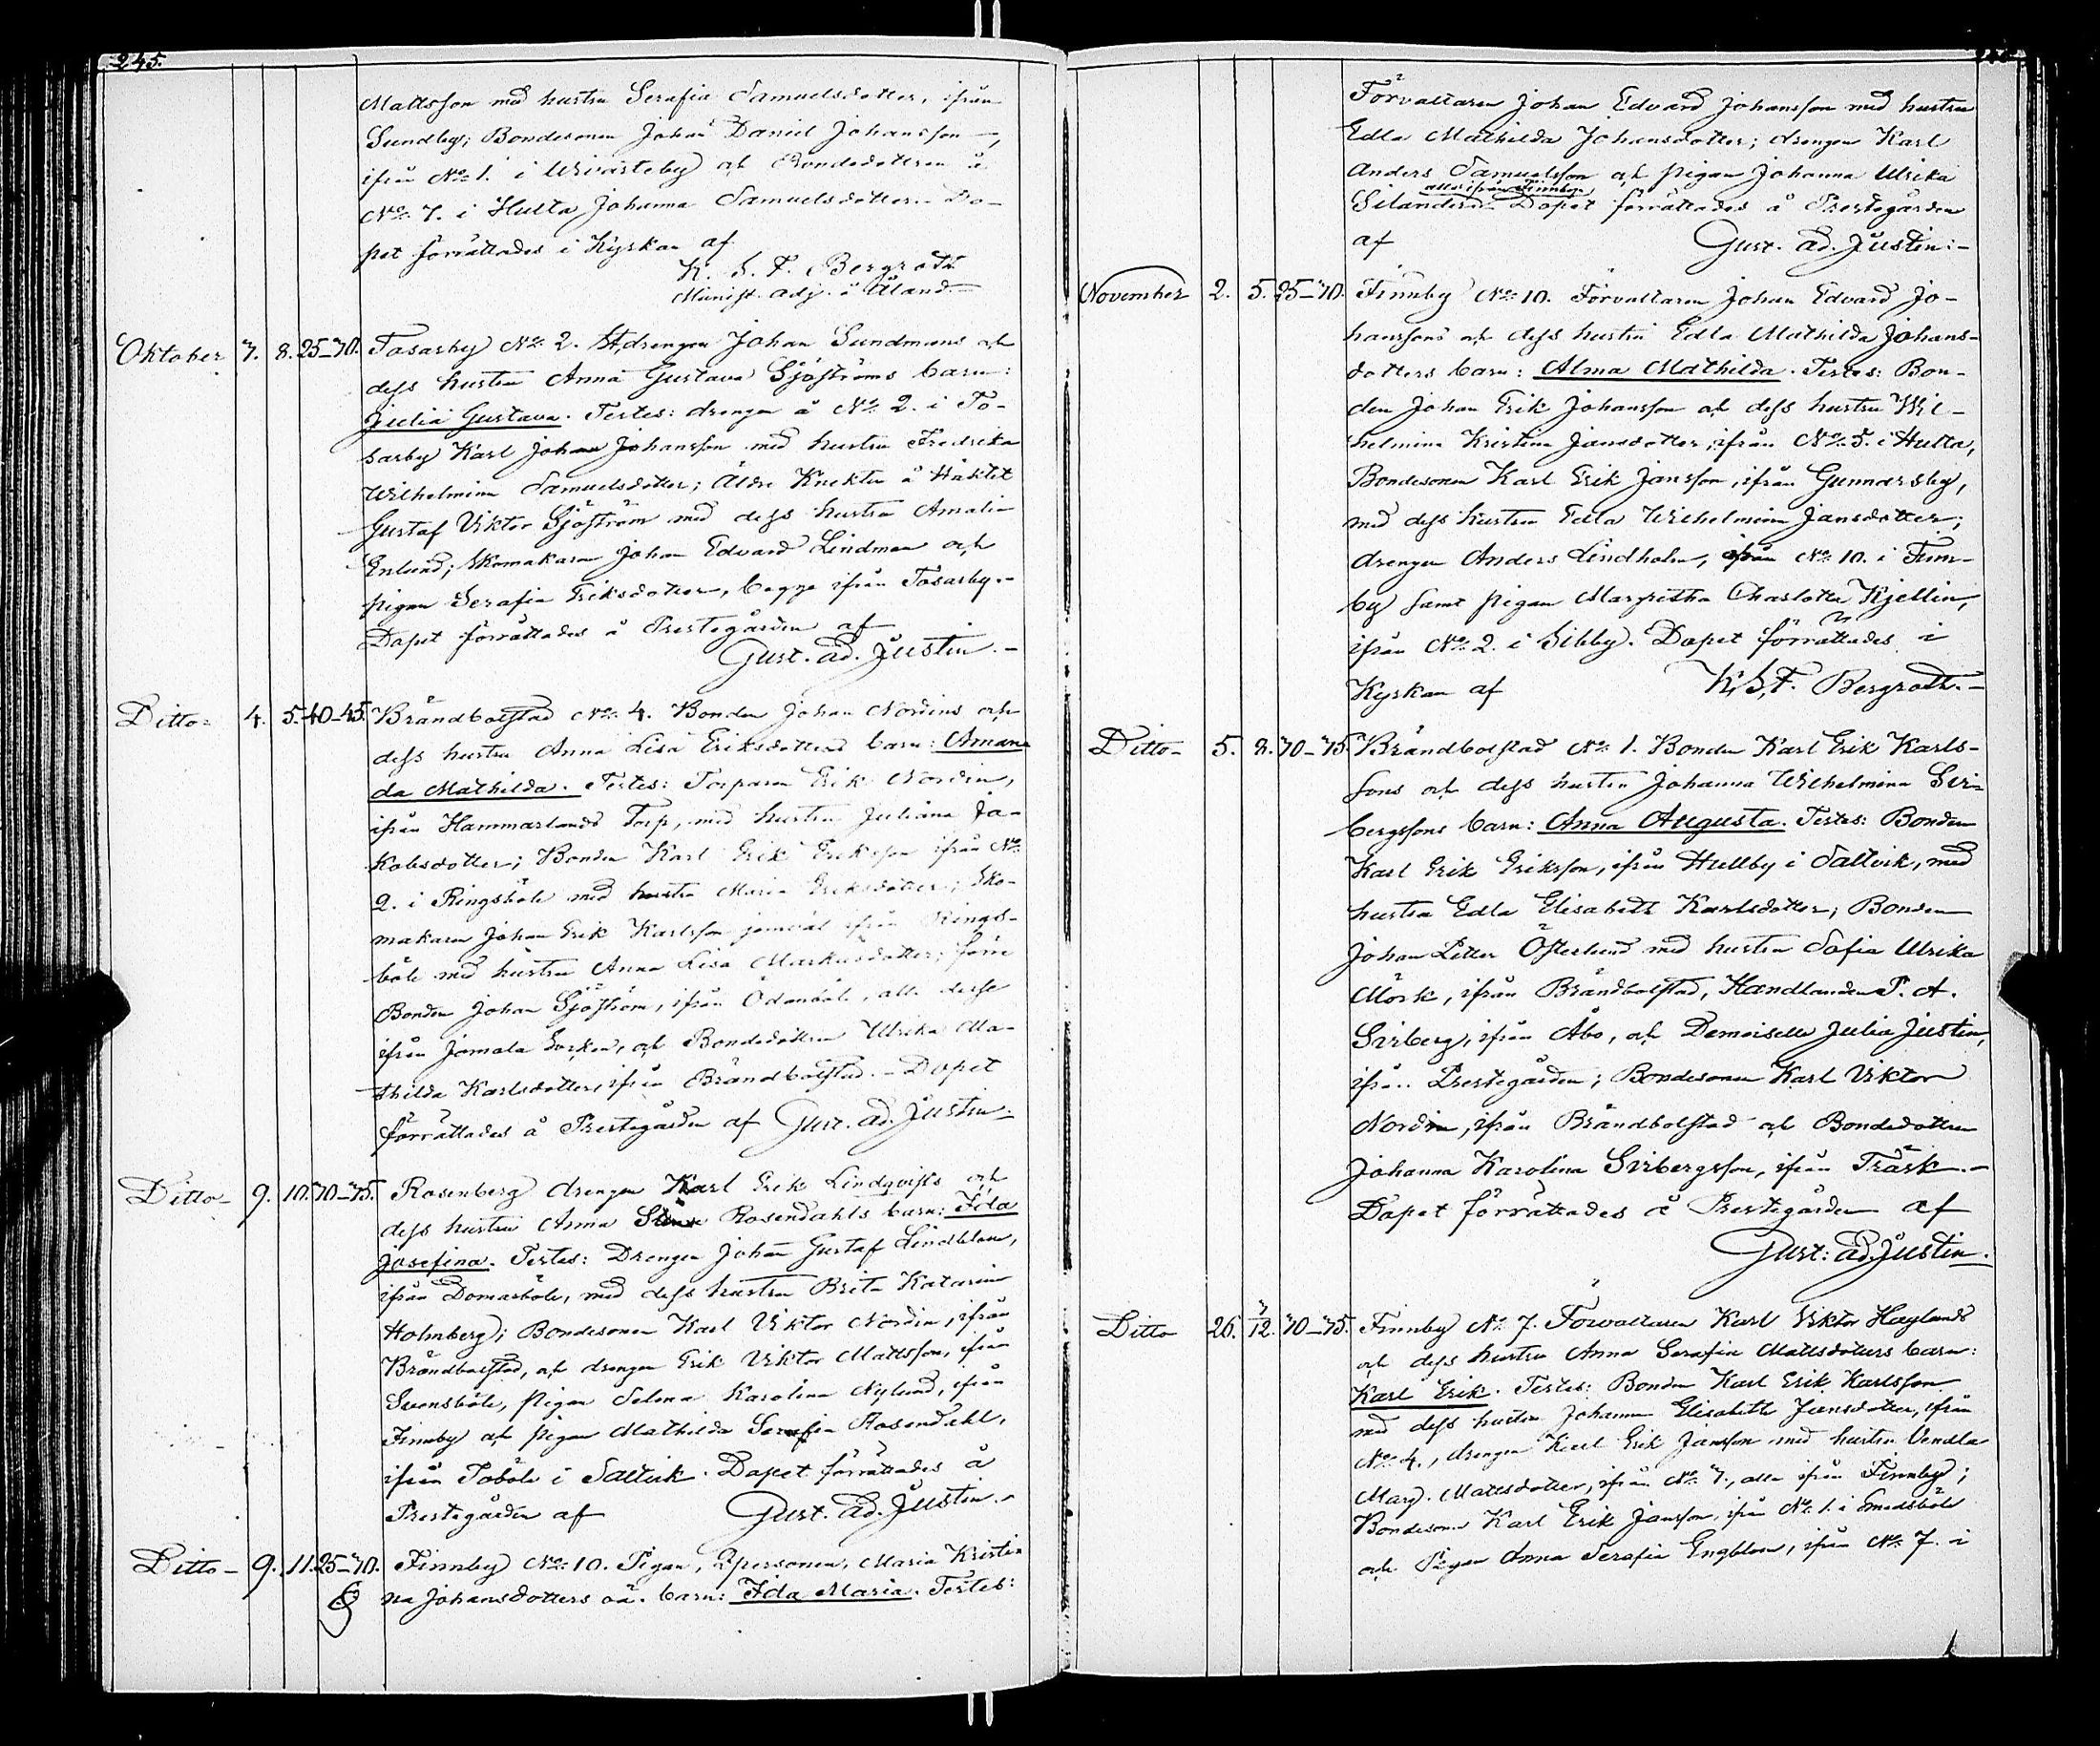 245.
Mattsson med hustru Serafia Samuelsdotter, ifrån
Sundby; Bondesonen Johan Daniel Johansson,
ifrån No 1. i Wivasteby och Bondedottren å
No 7. i Hulta Johanna Samuelsdotter. Do-
pet förrättades i Kyrkan af
K. S. F. Bergroth
Minist. adj. i Åland.
Oktober 7. 8. 25-70. Tosarby No 2. drengen Johan Sundmans och
dess hustru Anna Gustava Sjöströms barn:
Julia Gustava. Testes: drengen å No 2. i To-
sarby Karl Johan Johansson med hustru Fredrika
Wilhelmina Samuelsdotter; Äldre Knekten å Häktet
Gustaf Viktor Sjöström med dess hustru Amalia
Enlund; Skomakaren Johan Edvard Lindman och
pigan Serafia Eriksdotter, begge ifrån Tosarby.
Dopet förrättades å Prestegården af
Gust. Ad. Justin.
Ditto 4. 5. 40-45. Brändbolstad No 4. Bonden Johan Nordins och
dess hustru Anna Lisa Eriksdotters barn: Aman-
da Mathilda. Testes: Torparen Erik Nordin,
ifrån Hammarlands Torp, med hustru Juliana Ja-
kobsdotter; Bonden Karl Erik Eriksson ifrån No
2. i Ringsböle med hustru Maria Eriksdotter; Sko-
makaren Johan Erik Karlsson jemväl ifrån Rings-
böle med hustru Anna Lisa Markusdotter; förre
Bonden Johan Sjöström, ifrån Ödanböle, alle desse
ifrån Jomala Socken, och Bondedottren Ulrika Ma-
thilda Karlsdotter, ifrån Brändbolstad. - Dopet
förrättades å Prestegården af Gust. Ad. Justin.
Ditto 9. 10. 70-75. Rosenberg drengen Karl Erik Lindqvists och
dess hustru Anna Rosendahls barn: Ida
Josefina. Testes: Drengen Johan Gustaf Lindblom,
ifrån Domarböle, med dess hustru Brita Katarina
Holmberg; Bondesonen Karl Viktor Nordin, ifrån
Brändbolstad, och drengen Erik Viktor Mattsson, ifrån
Svensböle, pigan Selma Karolina Nylund, ifrån
Finnby och pigan Mathilda Serafia Rosendahl,
ifrån Toböle i Saltvik. Dopet förrättades å
Prestegården af Gust. Ad. Justin.
Ditto 9. 11. 25-70. Finnby No 10. Pigan, Qpersonen, Maria Kristi-
na Johansdotters oä. barn: Ida Maria. Testes:
Förvaltaren Johan Edvard Johansson med hustru
Edla Mathilda Johansdotter; drengen Karl
Anders Samuelsson och pigan Johanna Ulrika
alla ifrån Finnby
Silander. Dopet förrättades å Prestegården
af Gust. Ad. Justin.
November 2. 5. 25-70. Finnby No 10. Förvaltaren Johan Edvard Jo-
hanssons och dess hustru Edla Mathilda Johans-
dotters barn: Alma Mathilda. Testes: Bon-
den Johan Erik Johansson och dess hustru Wil-
helmina Kristina Jansdotter, ifrån No 5. i Hulta,
Bondesonen Karl Erik Jansson, ifrån Gunnarsby,
med dess hustru Edla Wilhelmina Jansdotter;
drengen Anders Lindholm, ifrån No 10. i Finn-
by samt pigan Margretha Charlotta Kjellin,
ifrån No 2. i Sibby. Dopet förrättades i
Kyrkan af K. S. F. Bergroth.
Ditto 5. 8. 70-75. Brändbolstad No 1. Bonden Karl Erik Karls-
sons och dess hustru Johanna Wilhelmina Sir-
bergssons barn: Anna Augusta. Testes: Bonden
Karl Erik Eriksson, ifrån Hullby i Saltvik, med
hustru Edla Elisabeth Karlsdotter; Bonden
Johan Petter Österlund med hustru Sofia Ulrika
Mörk, ifrån Brändbolstad, Handlanden P. A.
Sirberg, ifrån Åbo, och Demoiselle Julia Justin,
ifrån Prestegården; Bondesonen Karl Viktor
Nordin, ifrån Brändbolstad och Bondedottren
Johanna Karolina Sirbergsson, ifrån Träsk.
Dopet förrättades å Prestegården af
Gust. Ad. Justin.
Ditto 26. 3/12. 70-75. Finnby No 7. Förvaltaren Karl Viktor Häglunds
och dess hustru Anna Serafia Mattsdotters barn:
Karl Erik. Testes: Bonden Karl Erik Karlsson
med dess hustru Johanna Elisabeth Jansdotter, ifrån
No 4., drengen Karl Erik Jansson med hustru Vendla
Marg. Mattsdotter, ifrån No 7., alla ifrån Finnby;
Bondeson Karl Erik Jansson, ifrån No 1. i Smedsböle
och Pigan Anna Serafia Engblom, ifrån No 7. i